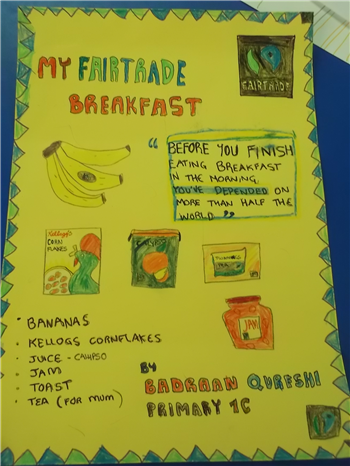 MY FAIRTRADE
BREAKFAST
FAIRTRADE
"BEFORE YOU FINISH
EATING BREAKFAST
IN THE MORNING,
YOU'VE DEPENDED ON
MORE THAN HALF THE
WORLD"
Kellogg's
CORN
FLAKES
JAM
• BANANAS
• KELLOGS CORNFLAKES
• JUICE - CALYPSO
• JAM
• TOAST
• TEA (FOR MUM)
BY
BADRAAN QURESHI
PRIMARY 1C